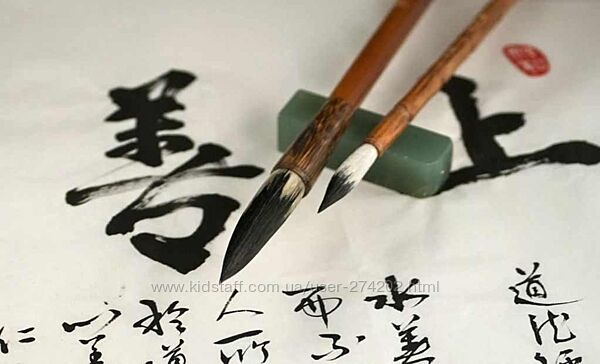 上善
道
水善
而不
人所
於道
心善
仁
www.kidstaff.com.ua/user-274202.html